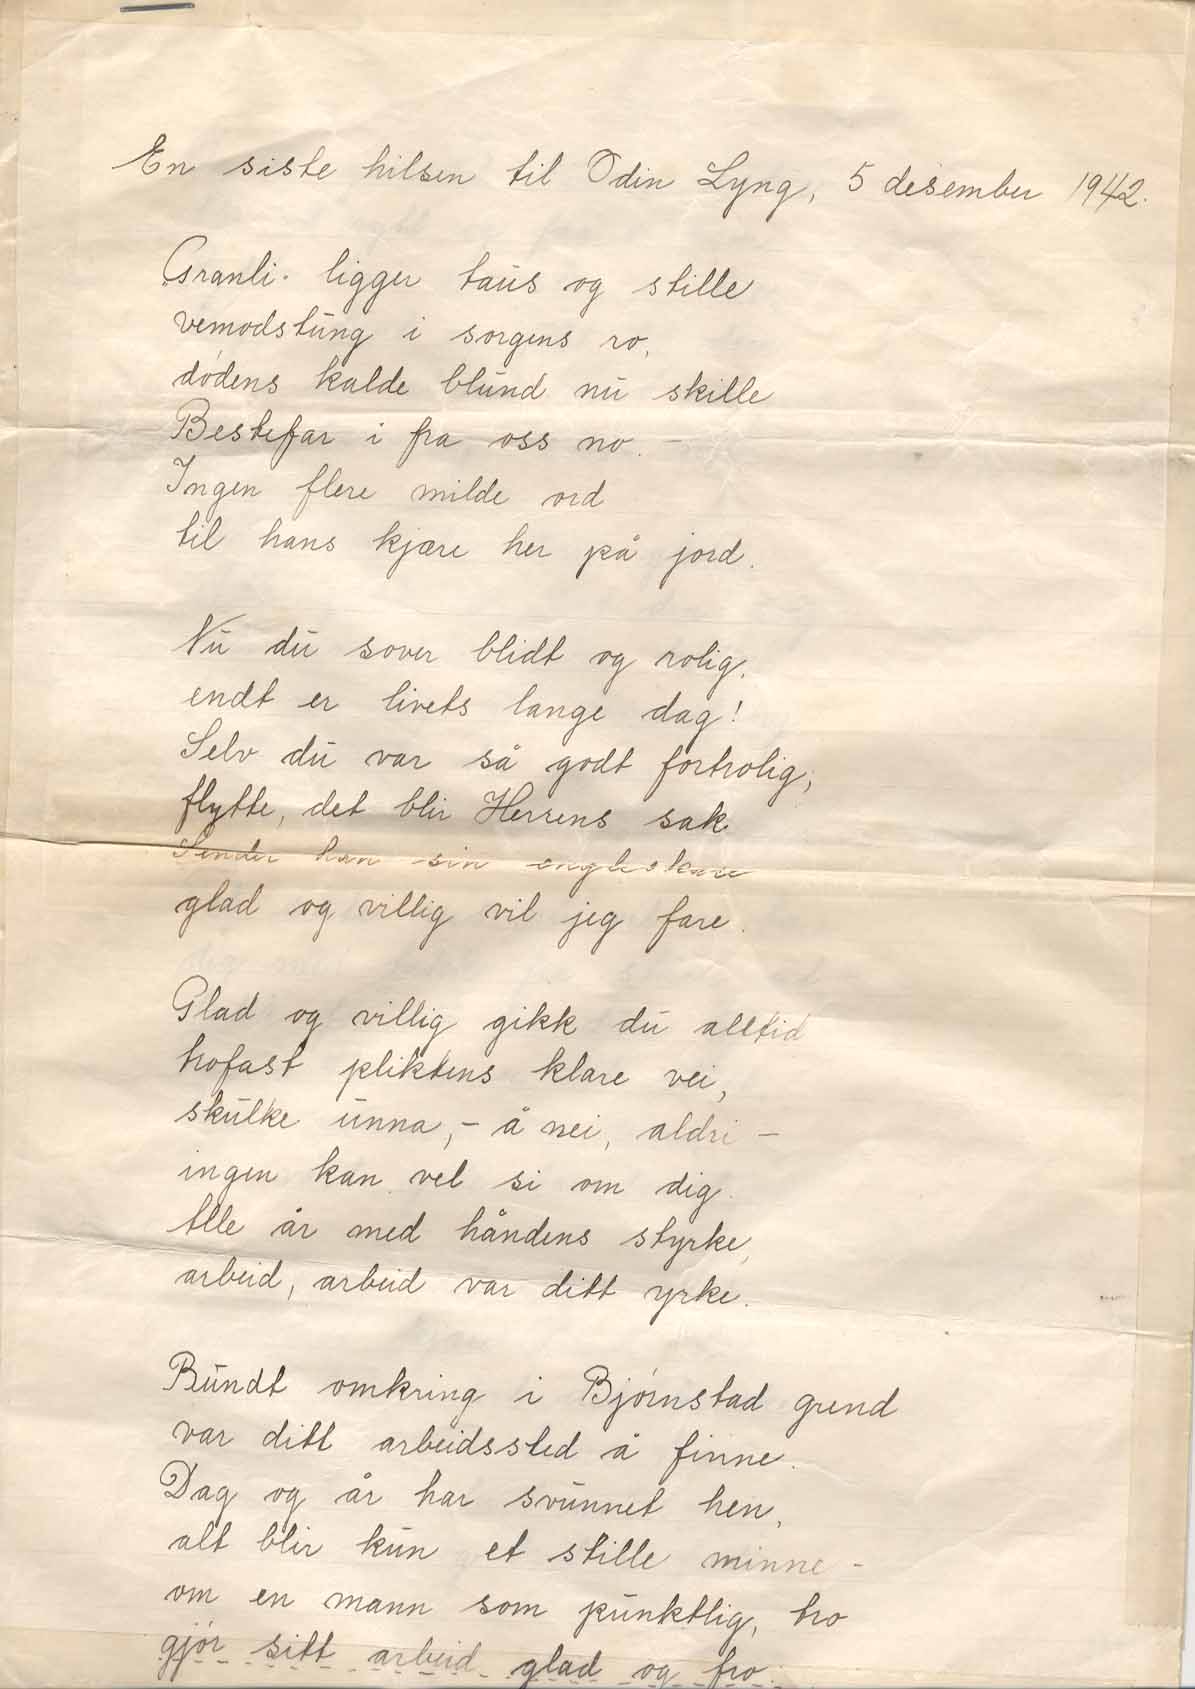 En siste hilsen til Odin Lyng, 5 desember 1942.
Granli ligger taus og stille
vemodstung i sorgens ro,
dødens kalde blund nu skille
Bestefar i fra oss no. -
Ingen flere milde ord
til hans kjære her på jord.
Nu du sover blidt og rolig,
endt er livets lange dag!
Selv du var så godt fortrolig,
flytte, det blir Herrens sak.
Sender han sin engleskare
glad og villig vil jeg fare.
Glad og villig gikk du alltid
trofast pliktens klare vei,
skulke unna, - å nei, aldri -
ingen kan vel si om dig.
Alle år med håndens styrke,
arbeid, arbeid var ditt yrke.
Rundt omkring i Bjørnstad grend
var ditt arbeidssted å finne.
Dag og år har svunnet hen,
alt blir kun et stille minne -
om en mann som punktlig, tro
gjør sitt arbeid glad og fro.